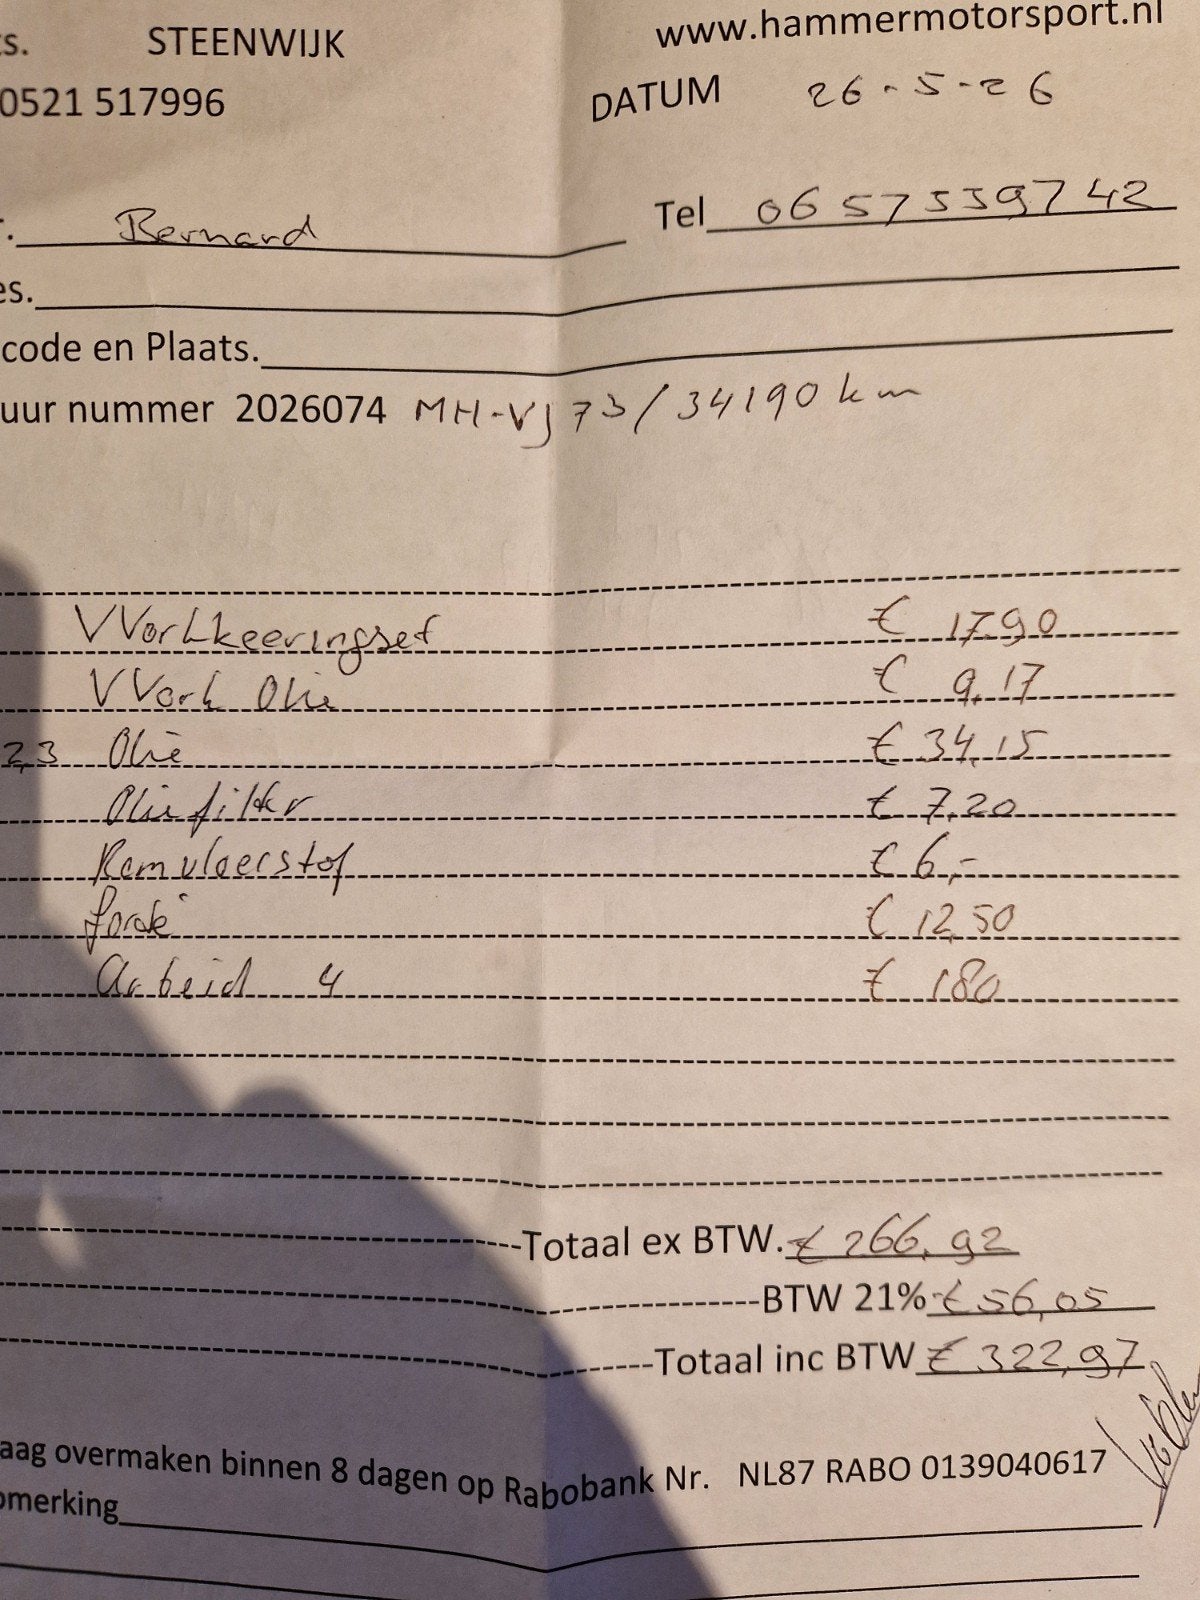 ts. STEENWIJK www.hammermotorsport.nl
0521 517996 DATUM 26-5-26
r. Bernard Tel 06 575539742
es.
code en Plaats.
uur nummer 2026074 MH-VJ 73/34190 km
VVorkkeeringset € 17,90
VVork Olie € 9,17
2,3 Olie € 34,15
Oliefilter € 7,20
Remvloeistof € 6,-
€ 12,50
Arbeid 4 € 180
Totaal ex BTW. € 266,92
BTW 21% € 56,05
Totaal inc BTW € 322,97
aag overmaken binnen 8 dagen op Rabobank Nr. NL87 RABO 0139040617
pmerking